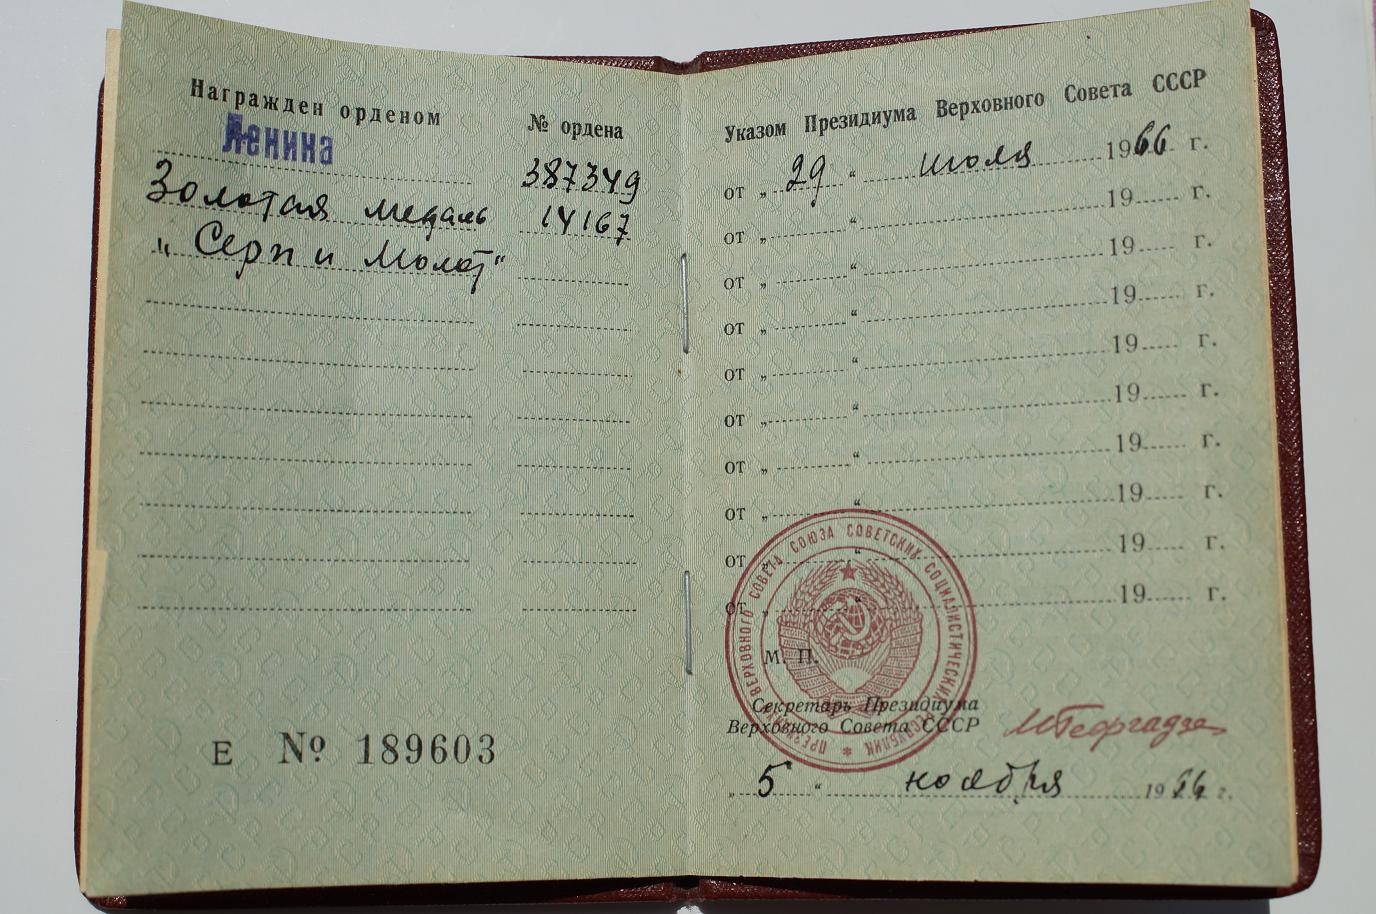 Награжден орденом
№ ордена
Ленина
387349
Золотая медаль
14167
„Серп и Молот“
Е № 189603
Указом Президиума Верховного Совета СССР
от „ 29 “ июля 1966 г.
от „ “ 19 г.
от „ “ 19 г.
от „ “ 19 г.
от „ “ 19 г.
от „ “ 19 г.
от „ “ 19 г.
от „ “ 19 г.
от „ “ 19 г.
от „ “ 19 г.
ПРЕЗИДИУМ ВЕРХОВНОГО СОВЕТА СОЮЗА СОВЕТСКИХ СОЦИАЛИСТИЧЕСКИХ РЕСПУБЛИК *
М. П.
Секретарь Президиума
Верховного Совета СССР
М Георгадзе
„ 5 “ ноября 1966 г.